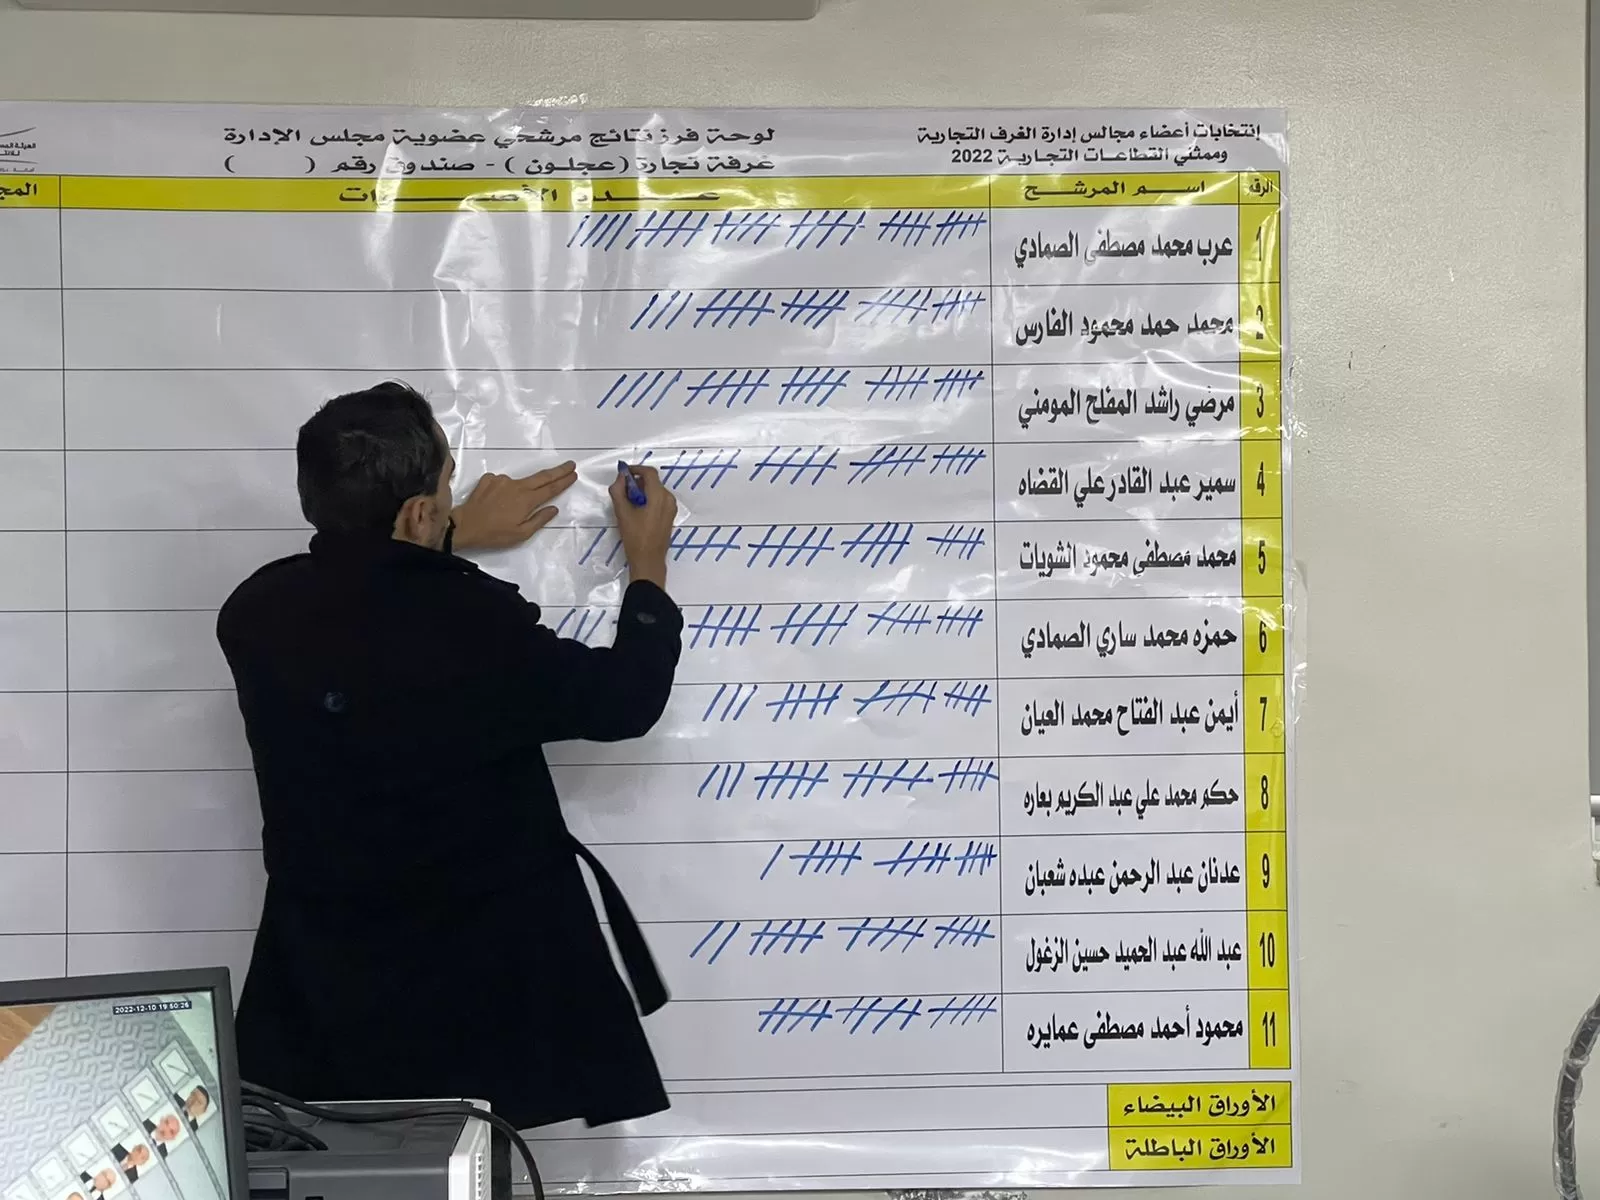 إنتخابات أعضاء مجالس إدارة الغرف التجارية
وممثلي القطاعات التجارية 2022
لوحة فرز نتائج مرشحي عضوية مجلس الإدارة
غرفة تجارة (عجلون) - صندوق رقم ( )
الرقم اسم المرشح عدد الأصوات المج
1 عرب محمد مصطفى الصمادي
2 محمد حمد محمود الفارس
3 مرضي راشد المفلح المومني
4 سمير عبد القادر علي القضاه
5 محمد مصطفى محمود الشويات
6 حمزه محمد ساري الصمادي
7 أيمن عبد الفتاح محمد العيان
8 حكم محمد علي عبد الكريم بعاره
9 عدنان عبد الرحمن عبده شعبان
10 عبد الله عبد الحميد حسين الزغول
11 محمود أحمد مصطفى عمايره
الأوراق البيضاء
الأوراق الباطلة
2022-12-10 19:50:26